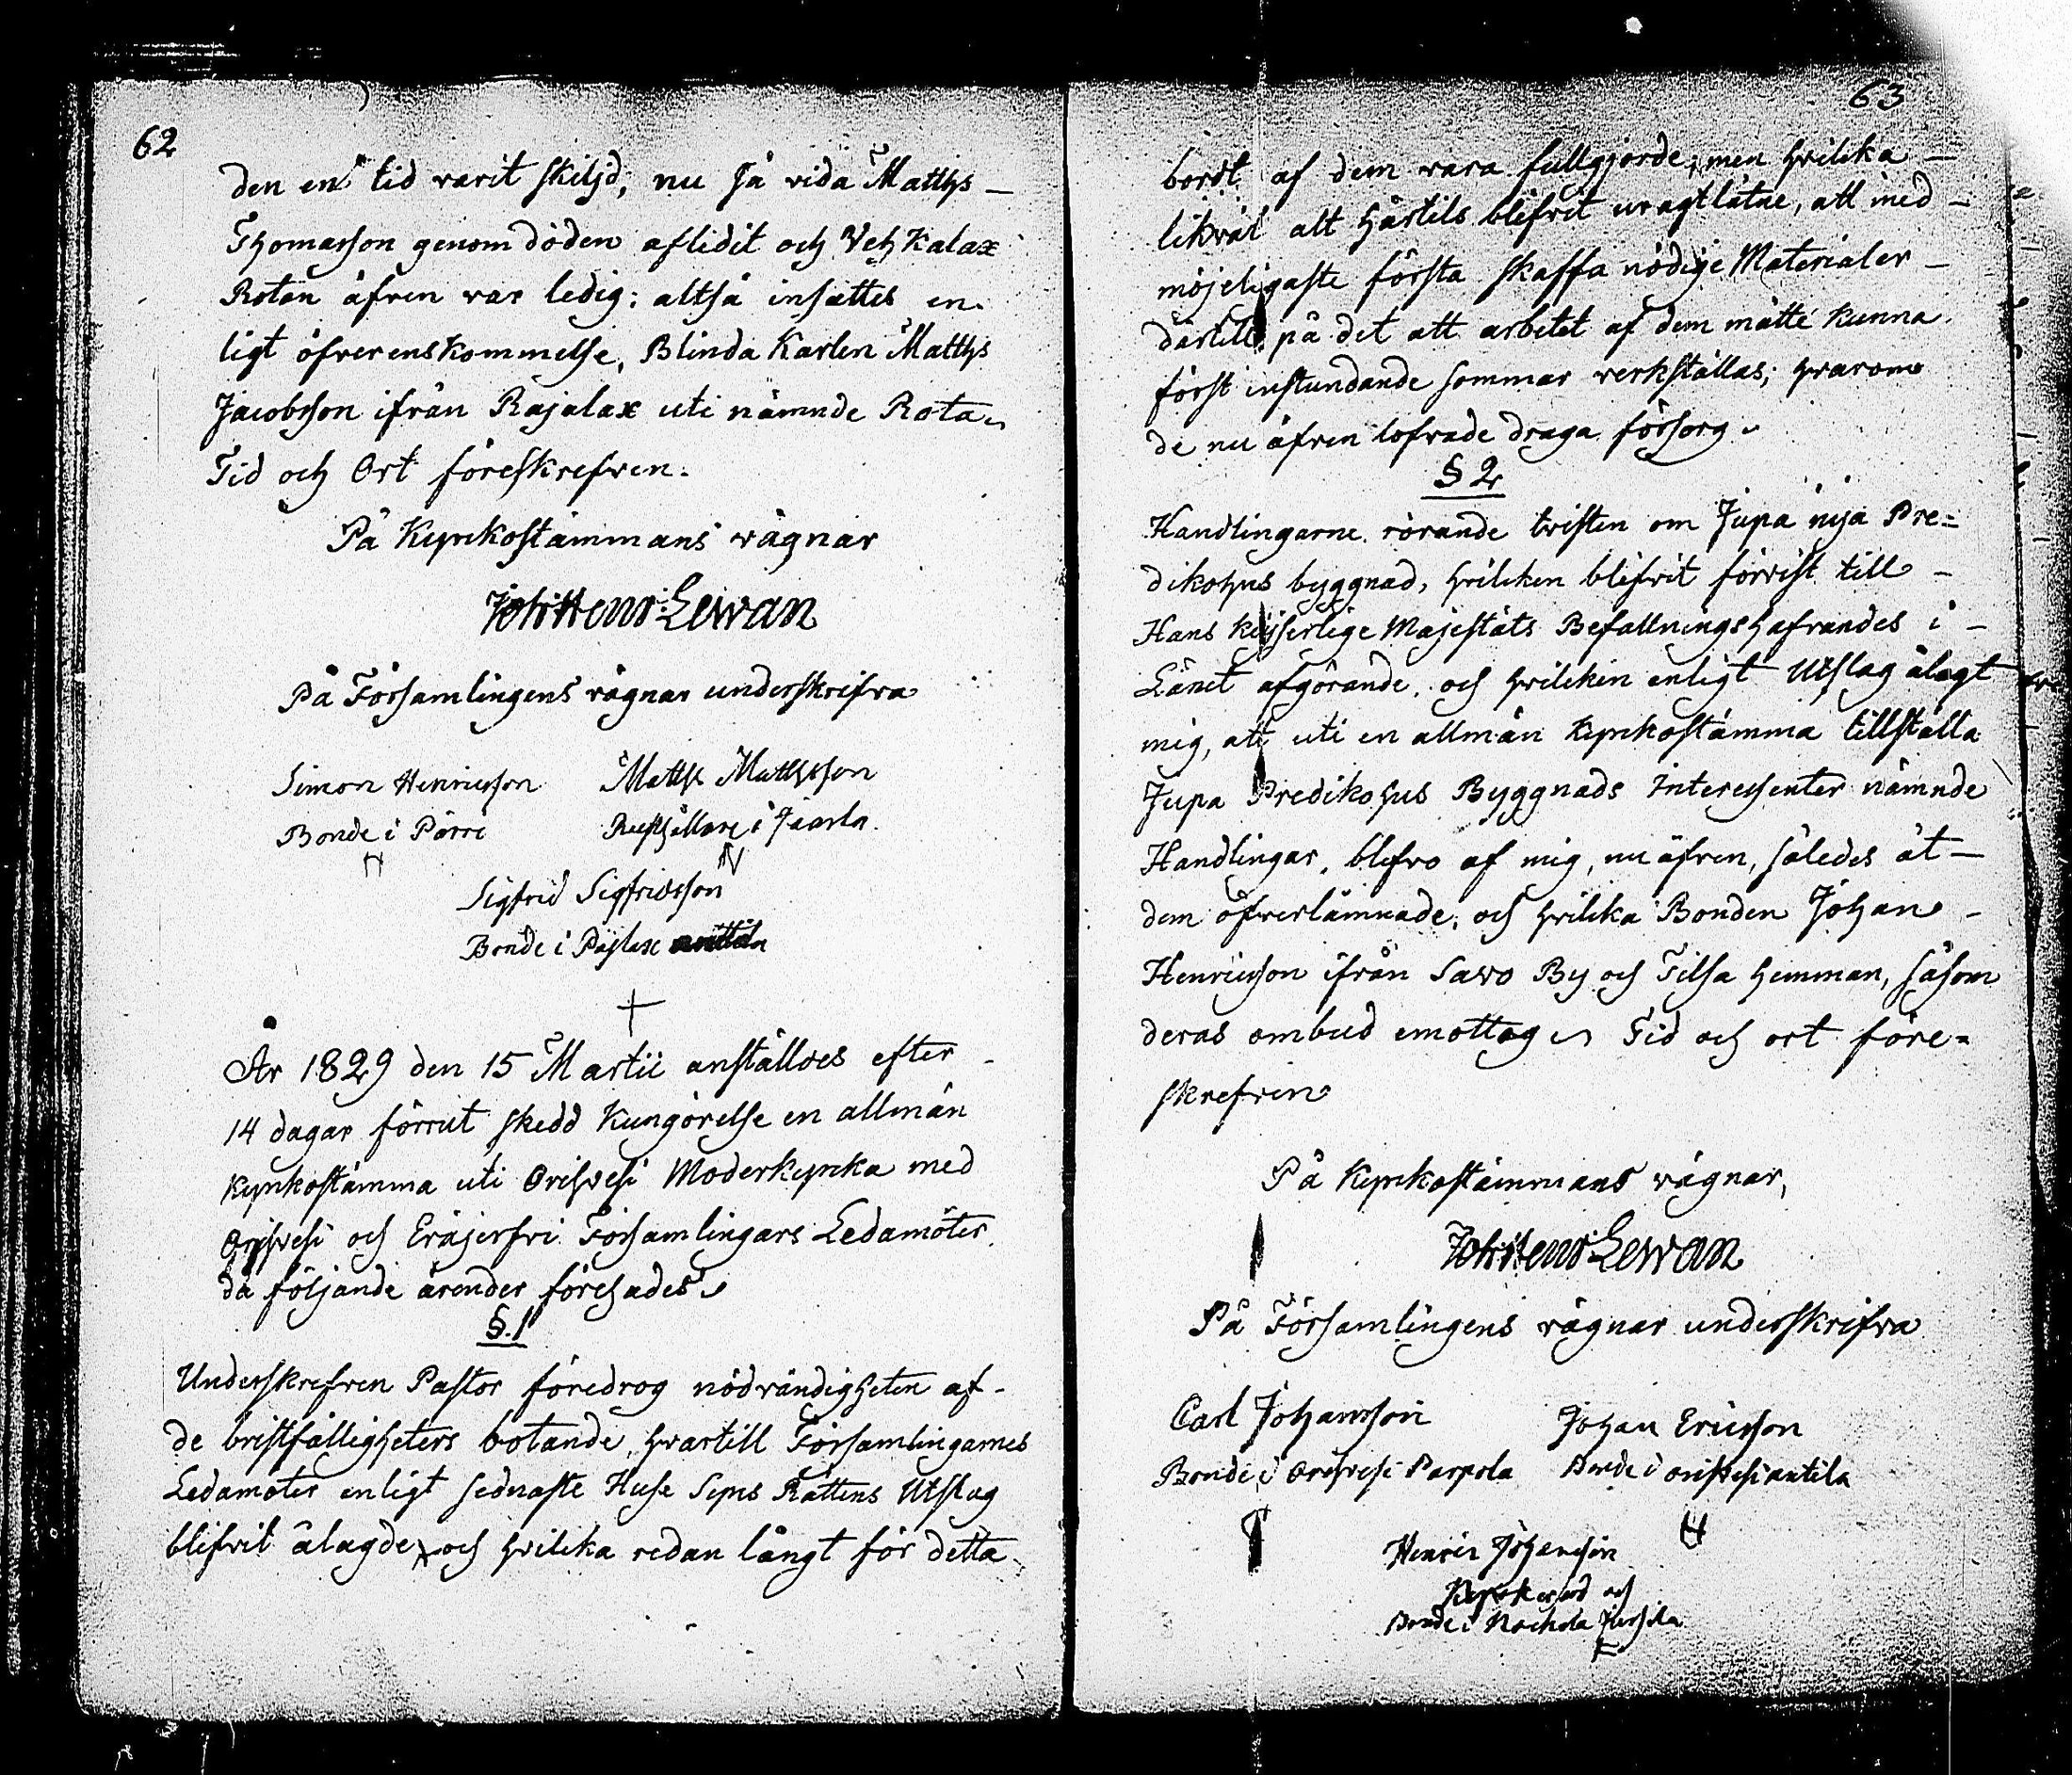 62
den en tid varit skiljd, nu så vida Matths
Thomasson genom döden aflidit och Vehkalax
Rotan äfven var ledig: altså insattes en
ligt öfverenskommelse, Blinda Karlen Matths
Jacobsson ifrån Rajalax uti nämnde Rota.
Tid och Ort föreskrefven.
På Kyrkostämmans vägnar
Joh: Henr: Lewan
På Församlingens vägnar underskrifva
Simon Henricsson Matths Matthsson
Bonde i Pärri Rusthållare i
Sigfrid Sigfridsson
Bonde i
År 1829 den 15 Martii anställdes efter
14 dagar förrut skedd Kungörelse en allmän
Kyrkostämma uti Orihvesi Moderkyrka med
Orihvesi och Eräjerfvi Församlingars Ledamöter
då följande ärender förehades
§.1
Underskrefven Pastor föredrog nödvändigheten af
de bristfälligheters botande, hvartill Församlingarnes
Ledamöter enligt sednaste Huse Syns Rättens Utslag
blifvit ålagde, och hvilcka redan långt för detta
63
bordt af dem vara fullgjorde, men hvilcka
likväl alt härtils blifvit uragtlåtne, att med
möjeligaste första skaffa nödige Materialer
därtill, på det att arbetet af dem måtte kunna
först instundande sommar verkställas; hvarom
de nu äfven lofvade draga försorg.
§ 2
Handlingarne rörande tvisten om Jupa nya Pre=
dikohus byggnad, hvilcken blifvit förvist till
Hans Kejserlige Majestäts Befallningshafvandes i
Länet afgörande, och hvilcken enligt Utslag ålagt
mig, att uti en allmän Kyrkostämma tillställa
Jupa Predikohus Byggnads Interessenter nämnde
Handlingar, blefvo af mig, nu äfven, således åt
dem öfverlämnade, och hvilcka Bonden Johan
Henricsson ifrån Savo By och Tilsa Hemman, såsom
deras ombud emottog. Tid och ort före=
skrefven
På Kyrkostämmans vägnar,
Joh: Henr: Lewan
På Församlingens vägnar underskrifva
Carl Johansson Johan Ericsson
Bonde i Orihvesi Parpola Bonde i orihvesi antila
Henric Johansson
Kyrkovärd och
Bonde i